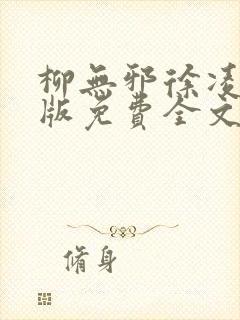 柳無邪徐凌
版免費全文
脩身